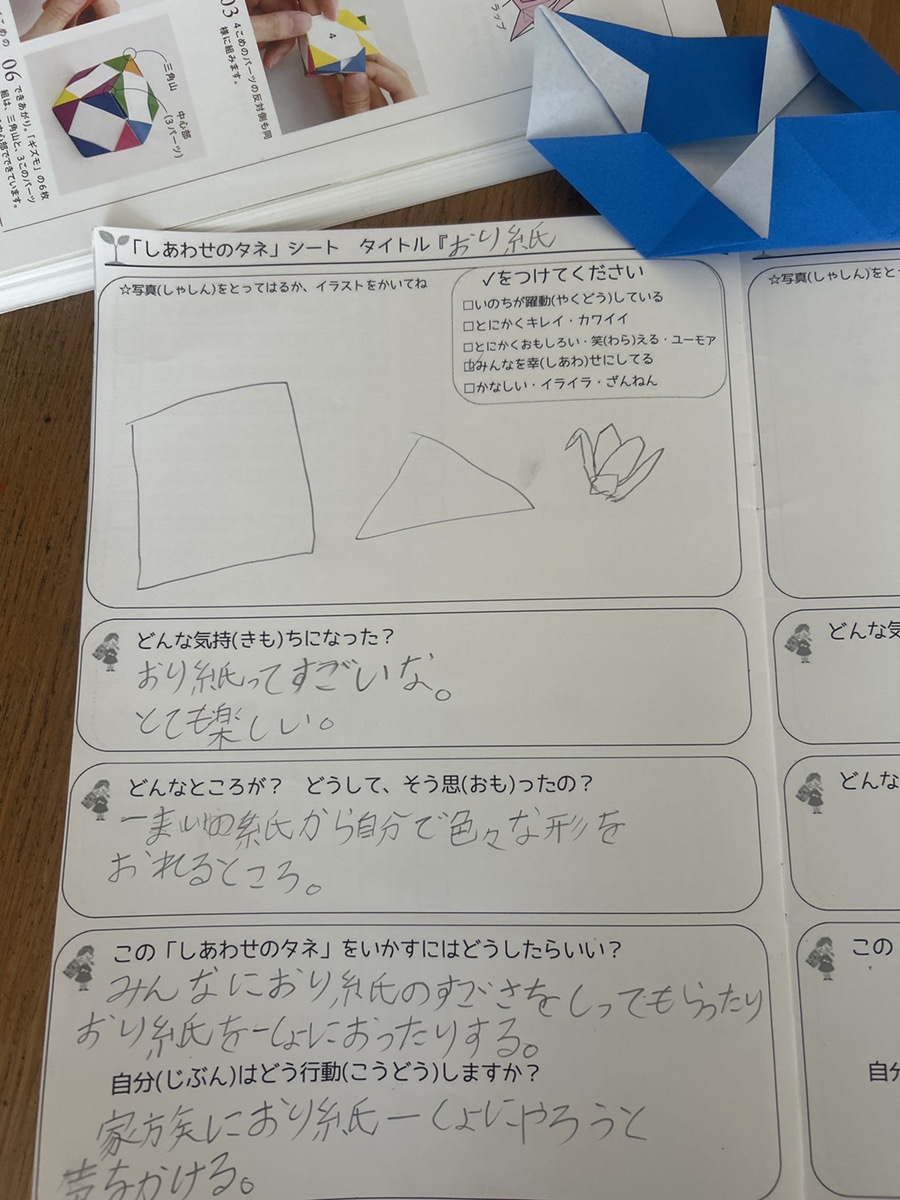 03
4こめのパーツの反対側も同
様に組みます。
4
ラップ
06
できあがり。「ギズモ」の6枚
組は、三角山と、3このパーツ
中心部でできています。
三角山
中心部
(3パーツ)
「しあわせのタネ」シート タイトル『おり紙
☆写真(しゃしん)をとってはるか、イラストをかいてね
✓をつけてください
□いのちが躍動(やくどう)している
□とにかくキレイ・カワイイ
□とにかくおもしろい・笑(わら)える・ユーモア
☑みんなを幸(しあわ)せにしてる
□かなしい・イライラ・ざんねん
どんな気持(きも)ちになった?
おり紙ってすごいな。
とても楽しい。
どんなところが? どうして、そう思(おも)ったの?
一まいの紙から自分で色々な形を
おれるところ。
この「しあわせのタネ」をいかすにはどうしたらいい?
みんなにおり紙のすごさをしってもらったり
おり紙を一しょにおったりする。
自分(じぶん)はどう行動(こうどう)しますか?
家族におり紙一しょにやろうと
声をかける。
☆写真(しゃしん)をと
どんな気
どんな
この
自分